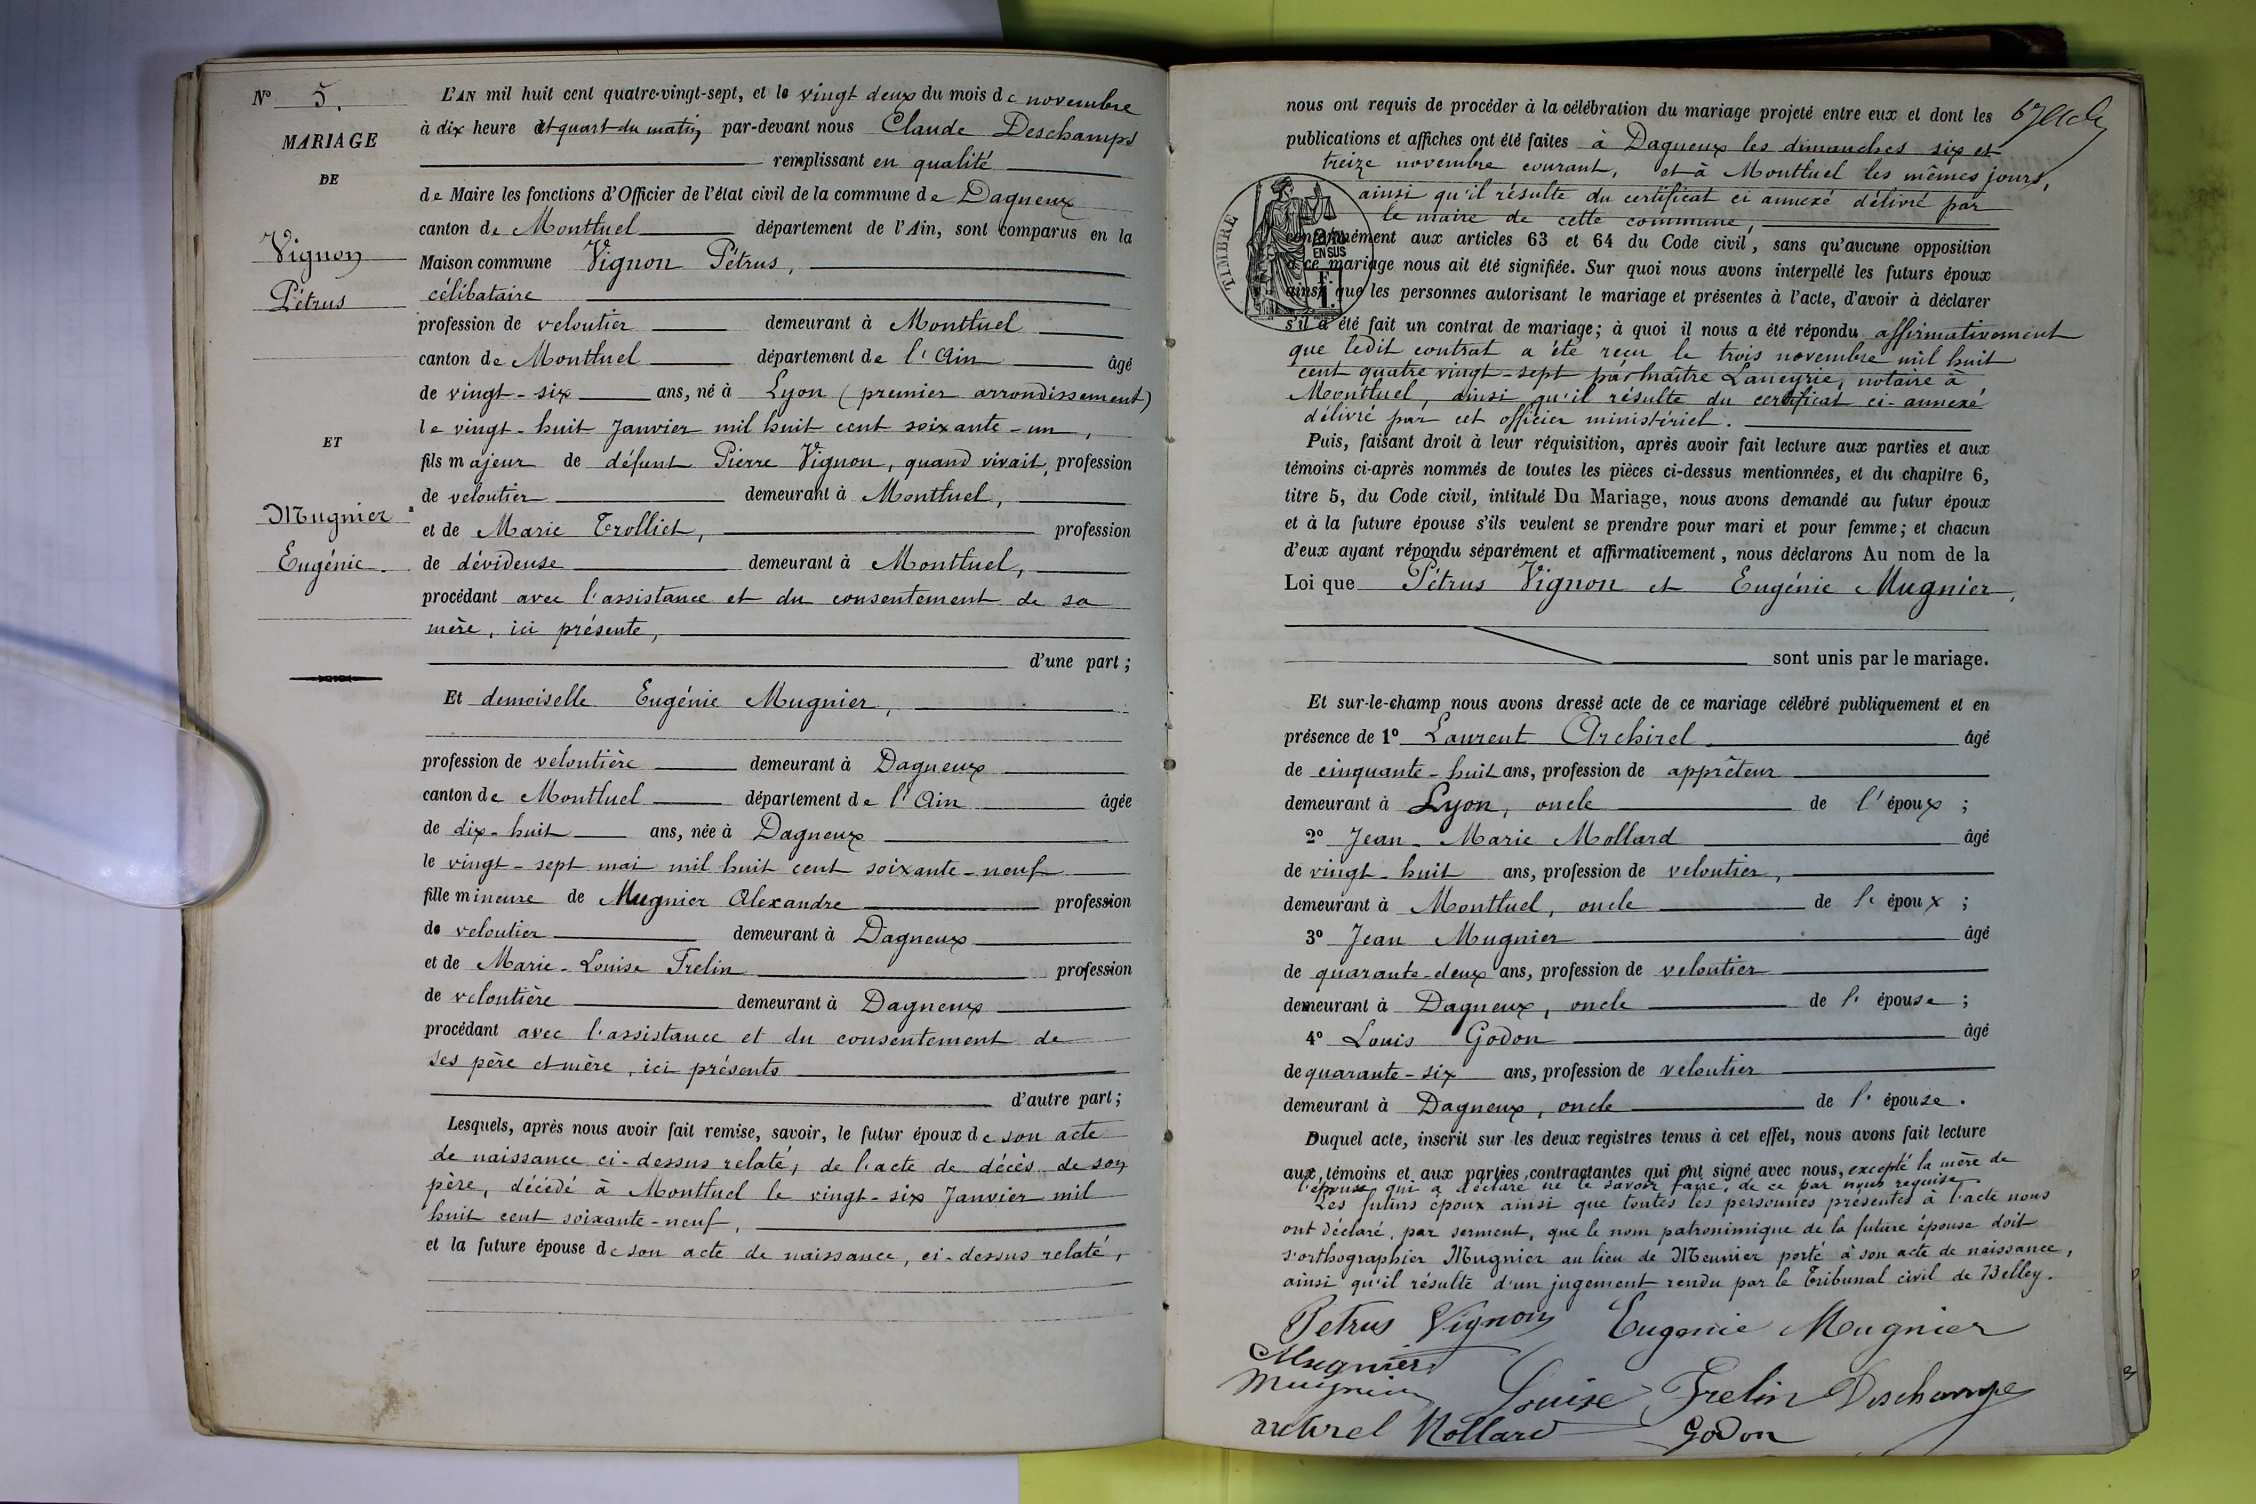 N° 5.
MARIAGE
DE
Vignon
Pétrus
ET
Mugnier
Eugénie.
L'AN mil huit cent quatre-vingt-sept, et le vingt deux du mois de novembre
à dix heure et quart du matin par-devant nous Claude Deschamps
remplissant en qualité
de Maire les fonctions d'Officier de l'état civil de la commune de Dagneux
canton de Montluel département de l'Ain, sont comparus en la
Maison commune Vignon Pétrus,
célibataire
profession de veloutier demeurant à Montluel
canton de Montluel département de l'Ain âgé
de vingt-six ans, né à Lyon (premier arrondissement)
le vingt-huit Janvier mil huit cent soixante-un,
fils majeur de défunt Pierre Vignon, quand vivait, profession
de veloutier demeurant à Montluel,
et de Marie Trolliet, profession
de dévideuse demeurant à Montluel,
procédant avec l'assistance et du consentement de sa
mère, ici présente,
d'une part;
Et demoiselle Eugénie Mugnier,
profession de veloutière demeurant à Dagneux
canton de Montluel département de l'Ain âgée
de dix-huit ans, née à Dagneux
le vingt-sept mai mil huit cent soixante-neuf
fille mineure de Mugnier Alexandre profession
de veloutier demeurant à Dagneux
et de Marie-Louise Frelin profession
de veloutière demeurant à Dagneux
procédant avec l'assistance et du consentement de
ses père et mère, ici présents
d'autre part;
Lesquels, après nous avoir fait remise, savoir, le futur époux de son acte
de naissance ci-dessus relaté, de l'acte de décès de son
père, décédé à Montluel le vingt-six Janvier mil
huit cent soixante-neuf,
et la future épouse de son acte de naissance, ci-dessus relaté,
nous ont requis de procéder à la célébration du mariage projeté entre eux et dont les
publications et affiches ont été faites à Dagneux les dimanches six et
treize novembre courant, et à Montluel les mêmes jours,
ainsi qu'il résulte du certificat ci annexé délivré par
le maire de cette commune,
TIMBRE
EN SUS
conformément aux articles 63 et 64 du Code civil, sans qu'aucune opposition
à ce mariage nous ait été signifiée. Sur quoi nous avons interpellé les futurs époux
ainsi que les personnes autorisant le mariage et présentes à l'acte, d'avoir à déclarer
s'il a été fait un contrat de mariage; à quoi il nous a été répondu affirmativement
que ledit contrat a été reçu le trois novembre mil huit
cent quatre vingt-sept par maître Laneyrie, notaire à
Montluel, ainsi qu'il résulte du certificat ci-annexé
délivré par cet officier ministériel.
Puis, faisant droit à leur réquisition, après avoir fait lecture aux parties et aux
témoins ci-après nommés de toutes les pièces ci-dessus mentionnées, et du chapitre 6,
titre 5, du Code civil, intitulé Du Mariage, nous avons demandé au futur époux
et à la future épouse s'ils veulent se prendre pour mari et pour femme; et chacun
d'eux ayant répondu séparément et affirmativement, nous déclarons Au nom de la
Loi que Pétrus Vignon et Eugénie Mugnier,
sont unis par le mariage.
Et sur-le-champ nous avons dressé acte de ce mariage célébré publiquement et en
présence de 1° Laurent Archirel âgé
de cinquante-huit ans, profession de apprêteur
demeurant à Lyon, oncle de l'époux;
2° Jean-Marie Mollard âgé
de vingt-huit ans, profession de veloutier,
demeurant à Montluel, oncle de l'époux;
3° Jean Mugnier âgé
de quarante-deux ans, profession de veloutier
demeurant à Dagneux, oncle de l'épouse;
4° Louis Godon âgé
de quarante-six ans, profession de veloutier
demeurant à Dagneux, oncle de l'épouse.
Duquel acte, inscrit sur les deux registres tenus à cet effet, nous avons fait lecture
aux témoins et aux parties contractantes qui ont signé avec nous, excepté la mère de
l'épouse qui a déclaré ne le savoir faire, de ce par nous requise
Les futurs époux ainsi que toutes les personnes présentes à l'acte nous
ont déclaré, par serment, que le nom patronimique de la future épouse doit
s'orthographier Mugnier au lieu de Meunier porté à son acte de naissance,
ainsi qu'il résulte d'un jugement rendu par le Tribunal civil de Belley.
Petrus Vignon Eugenie Mugnier
Mugnier
Mugnier Louise Frelin Deschamps
Mollard Godon